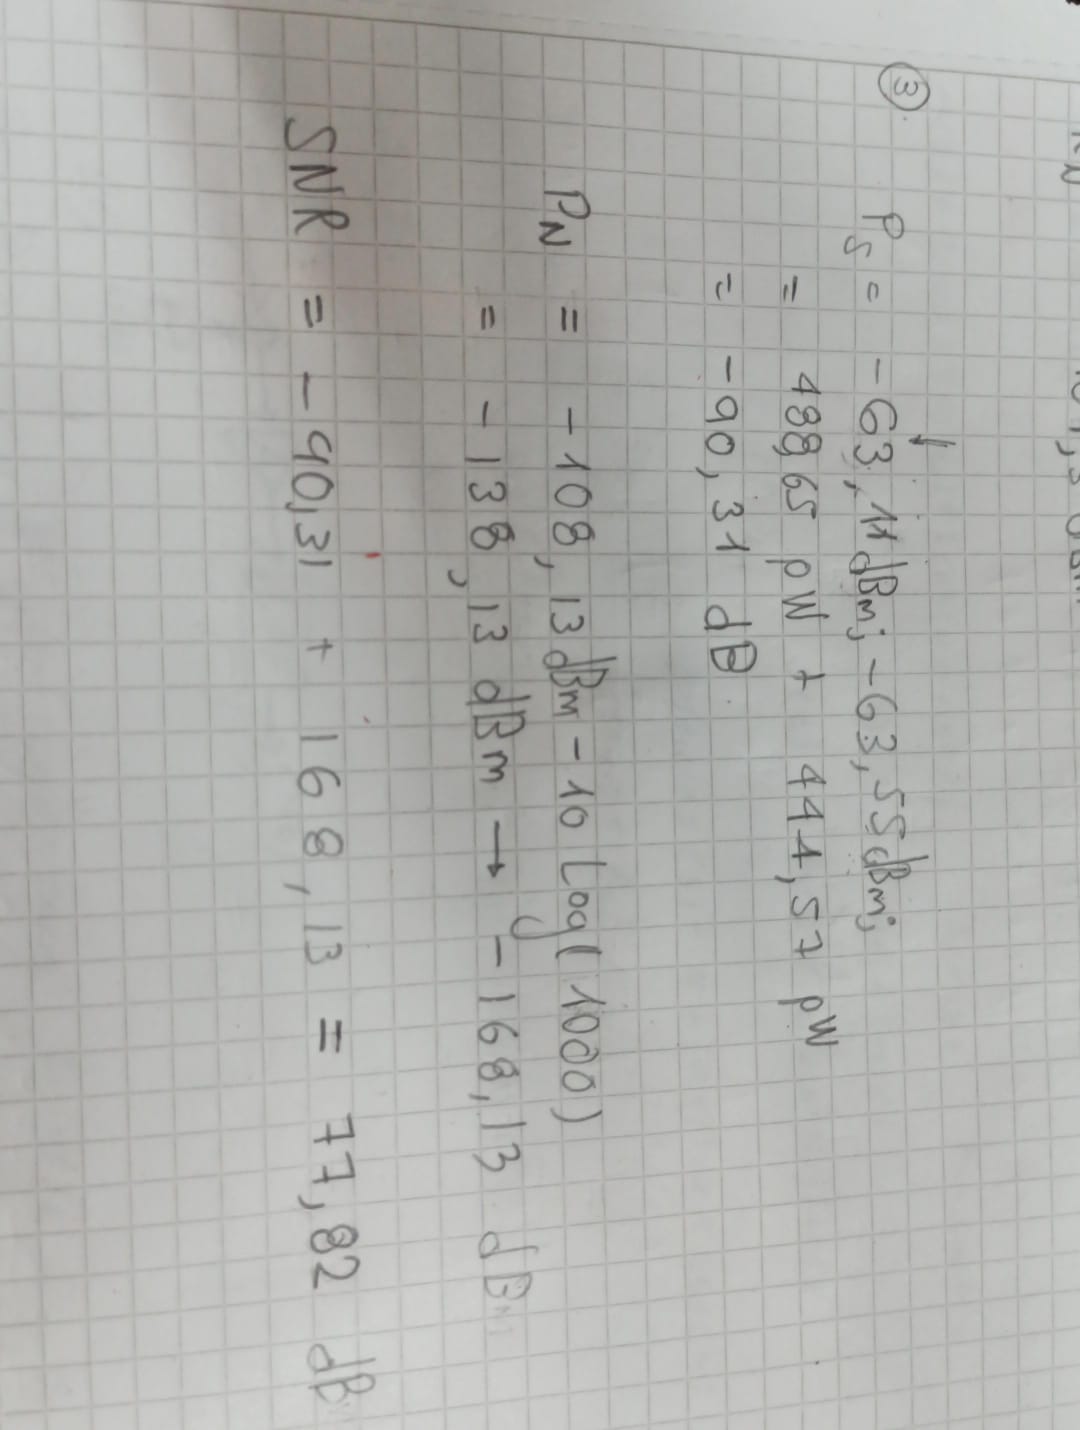 ③ P_S = -63,11 dBm; -63,55 dBm;
= 488,65 pW + 441,57 pW
= -90,31 dB
P_N = -108,13 dBm - 10 Log(1000)
= -138,13 dBm → -168,13 dB
SNR = -90,31 + 168,13 = 77,82 dB